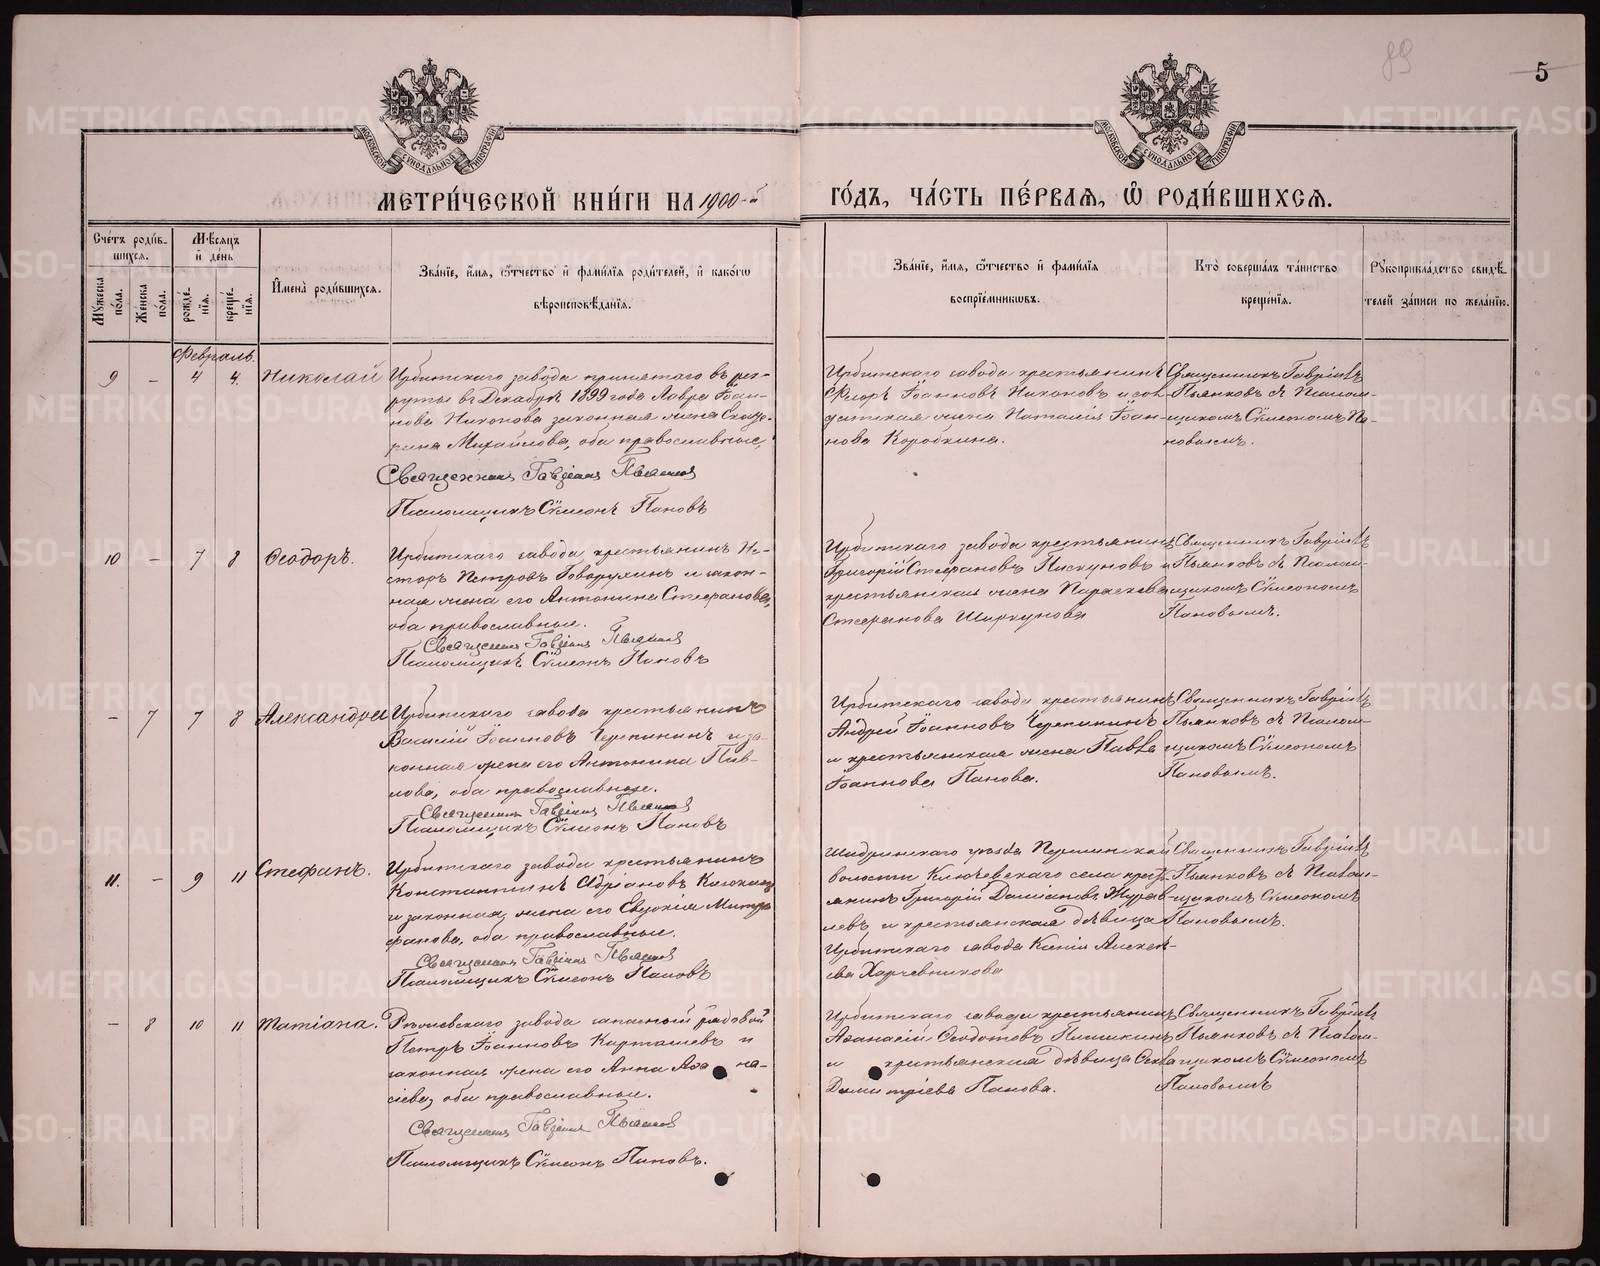 89
5
МОСКОВСКОЙ СѴНОДАЛЬНОЙ ТИПОГРАФІИ
МОСКОВСКОЙ СѴНОДАЛЬНОЙ ТИПОГРАФІИ
МЕТРИ́ЧЕСКОЙ КНИ́ГИ НА 1900-й ГО́ДЪ, ЧА́СТЬ ПЕ́РВАѦ, Ѡ РОДИ́ВШИХСѦ.
Сче́тъ роди́в-
шихсѧ.
Мѣ́сѧцъ
и҆ де́нь
Мꙋ́жеска
по́ла.
Же́нска
по́ла.
рожде́-
нїѧ.
креще́-
нїѧ.
И҆мена̀ роди́вшихсѧ.
Зва́нїе, и҆́мѧ, ѻ҆́тчество и҆ фамі́лїѧ роди́телей, и҆ како́гѡ
вѣроисповѣ́данїѧ.
Зва́нїе, и҆́мѧ, ѻ҆́тчество и҆ фамі́лїѧ
воспрїе́мникѡвъ.
Кто̀ соверша́лъ та́инство
креще́нїѧ.
Рꙋкоприкла́дство свидѣ́-
телей за́писи по жела́нїю.
Февраль.
9 - 4 4. Николай
Ирбитскаго завода принятаго въ рек-
руты въ Декабрѣ 1899 года Лавра Іоан-
нова Никонова законная жена Екате-
рина Михайлова, оба православные,
Священникъ Гавріилъ Пьянковъ
Псаломщикъ Сѵмеонъ Пановъ
Ирбитскаго завода крестьянинъ
Ѳеодоръ Іоанновъ Никоновъ и сол-
датская жена Наталія Іоан-
нова Коробкина.
Священникъ Гавріилъ
Пьянковъ съ Псалом-
щикомъ Сѵмеономъ Па-
новымъ.
10 - 7 8 Ѳеодоръ.
Ирбитскаго завода крестьянинъ Не-
сторъ Петровъ Говорухинъ и закон-
ная жена его Антонина Стефанова,
оба православные.
Священникъ Гавріилъ Пьянковъ
Псаломщикъ Сѵмеонъ Пановъ
Ирбитскаго завода крестьянинъ
Григорій Стефановъ Пискуновъ и
крестьянская жена Параскева
Стефанова Ширкунова
Священникъ Гавріилъ
Пьянковъ съ Псалом-
щикомъ Сѵмеономъ
Пановымъ.
- 7 7 8 Александра
Ирбитскаго завода крестьянинъ
Василій Іоанновъ Черепкинъ и за-
конная жена его Антонина Пав-
лова, оба православные.
Священникъ Гавріилъ Пьянковъ
Псаломщикъ Сѵмеонъ Пановъ
Ирбитскаго завода крестьянинъ
Андрей Іоанновъ Черепкинъ
и крестьянская жена Павла
Іоаннова Панова.
Священникъ Гавріилъ
Пьянковъ съ Псалом-
щикомъ Сѵмеономъ
Пановымъ.
11. - 9 11 Стефанъ.
Ирбитскаго завода крестьянинъ
Константинъ Адріановъ
и законная жена его Евдокія Митро-
фанова, оба православные.
Священникъ Гавріилъ Пьянковъ
Псаломщикъ Сѵмеонъ Пановъ
Шадринскаго уѣзда
волости Ключевскаго села кресть-
янинъ Григорій Даміановъ Журав-
левъ и крестьянская дѣвица
Ирбитскаго завода Ксенія Алексѣ-
ева Харчевникова
Священникъ Гавріилъ
Пьянковъ съ Псалом-
щикомъ Сѵмеономъ
Пановымъ.
- 8 10 11 Татіана.
Режевскаго завода запасный рядовой
Петръ Іоанновъ Карташевъ и
законная жена его Анна Аѳана-
сіева, оба православные.
Священникъ Гавріилъ Пьянковъ
Псаломщикъ Сѵмеонъ Пановъ.
Ирбитскаго завода крестьянинъ
Аѳанасій Ѳеодотовъ
и крестьянская дѣвица
Димитріева Панова.
Священникъ Гавріилъ
Пьянковъ съ Псалом-
щикомъ Сѵмеономъ
Пановымъ
METRIKI.GASO-URAL.RU